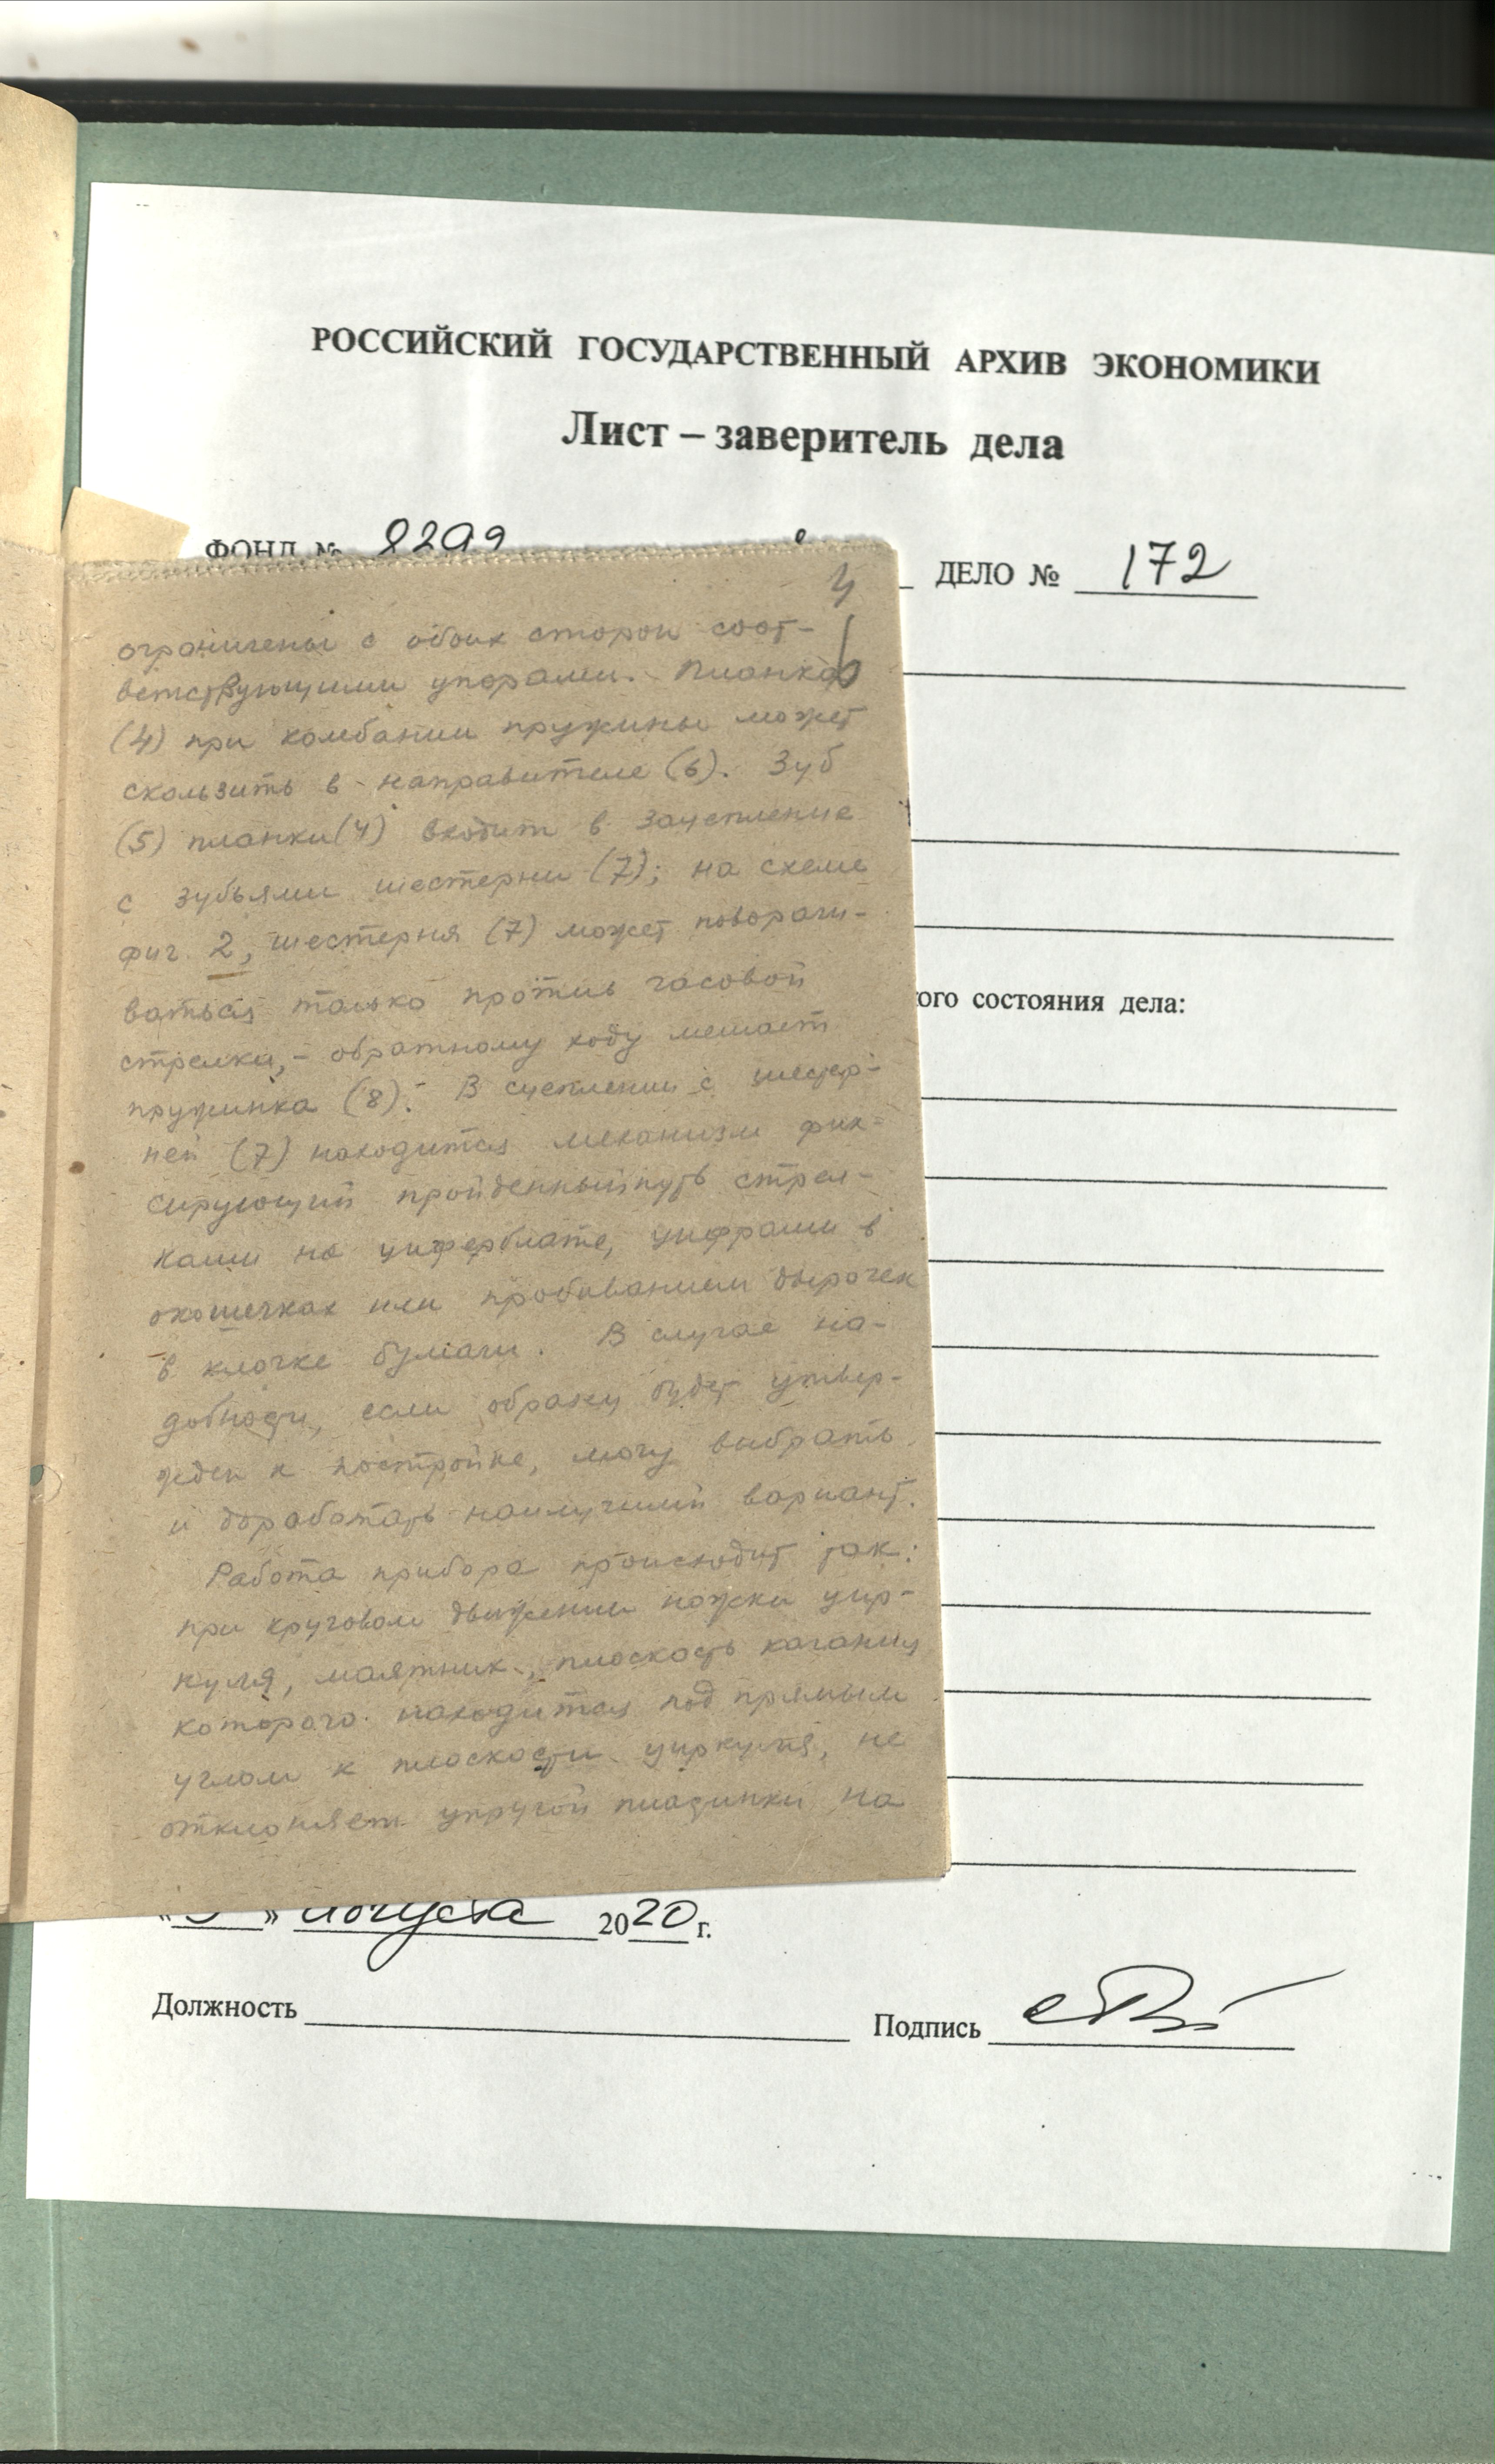 РОССИЙСКИЙ ГОСУДАРСТВЕННЫЙ АРХИВ ЭКОНОМИКИ
Лист – заверитель дела
ФОНД № 8299
ДЕЛО № 172
4
ограничены с обоих сторон соот-
ветствующими упорами. Планка
(4) при колебании пружины может
скользить в направителе (6). Зуб
(5) планки (4) входит в зацепление
с зубьями шестерни (7); на схеме
фиг. 2, шестерня (7) может поворачи-
ваться только против часовой
стрелки, - обратному ходу мешает
пружинка (8). В сцеплении с шестер-
ней (7) находится механизм фик-
сирующий пройденный путь стрел-
ками на циферблате, цифрами в
окошечках или пробиванием дырочек
в клочке бумаги. В случае на-
добности, если образец будет утвер-
жден к постройке, могу выбрать
и доработать наилучший вариант.
Работа прибора происходит так:
при круговом движении ножки цир-
куля, маятник, плоскость качания
которого находится под прямым
углом к плоскости циркуля, не
отклоняет упругой пластинки на
ого состояния дела:
августа 2020 г.
Должность
Подпись